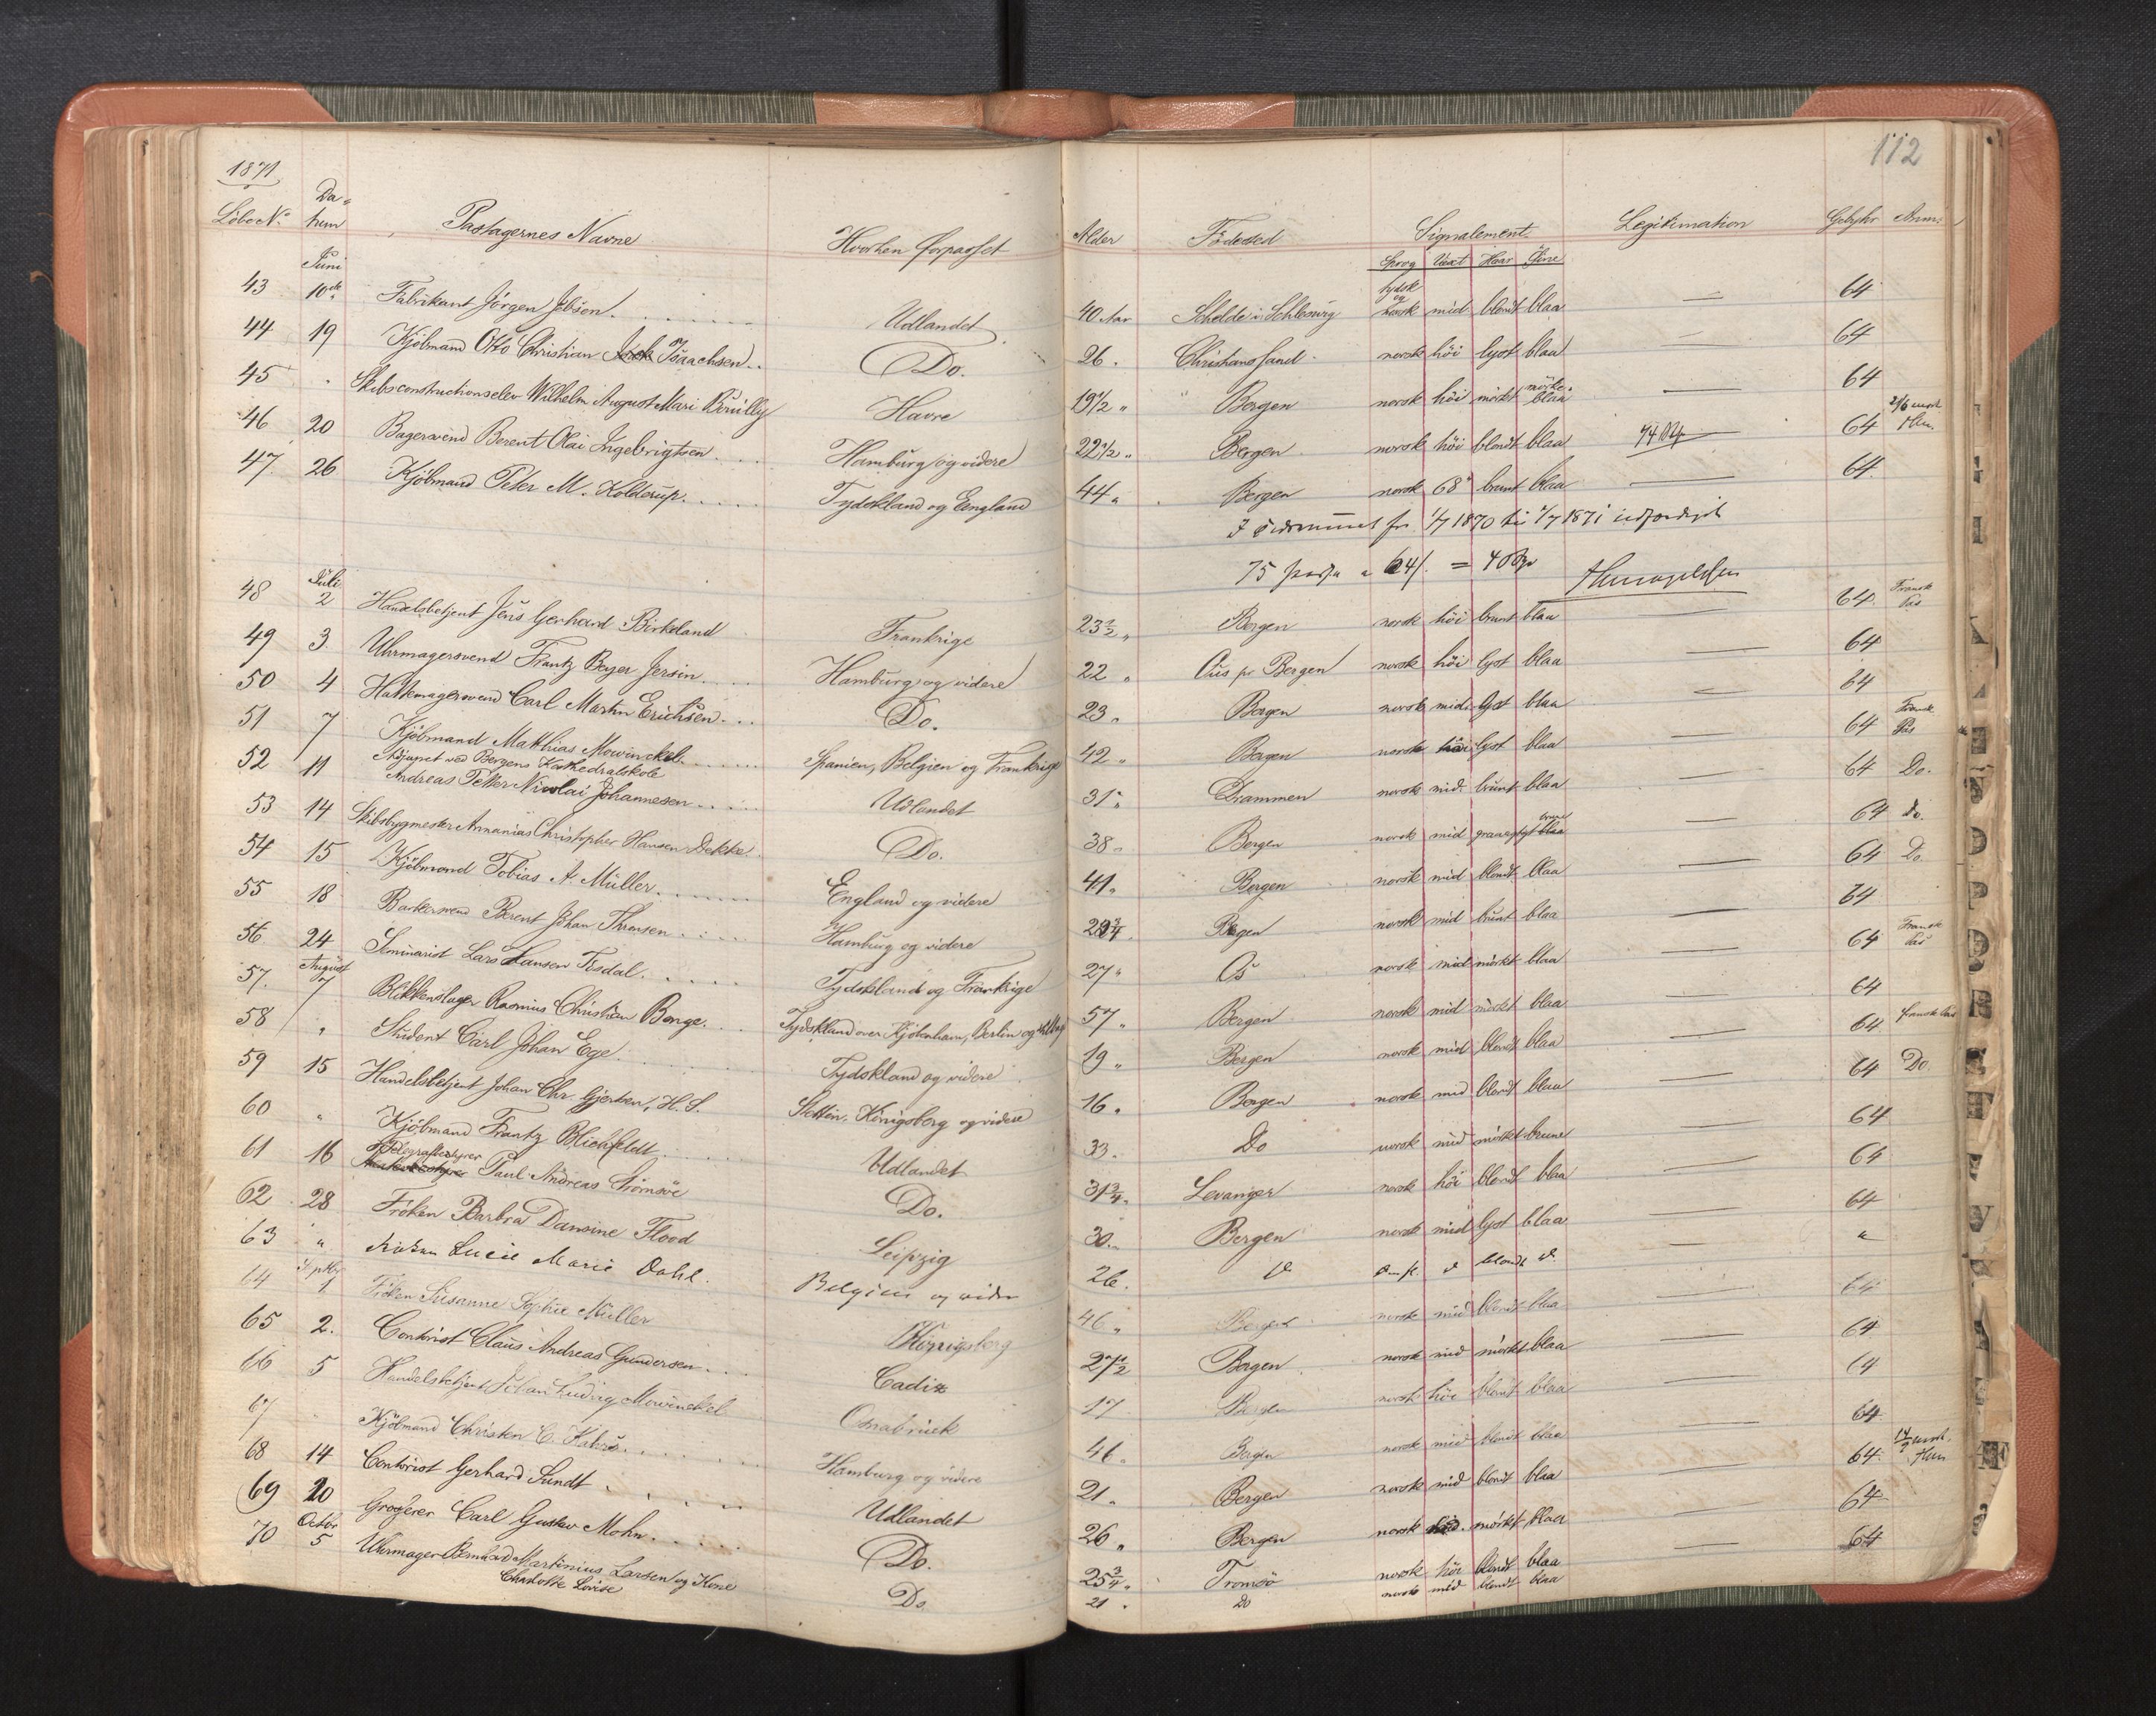 1871
112
Löbe No. Datum Passagernes Navne Hvorhen forpasset Alder Födested Signalement Legitimation Gebyhr Anm:
Sprog Væxt Haar Öine
Juni
43 10de Fabrikant Jörgen Jebsen. Udlandet 40 Aar Schelde i Schleswig tydsk og norsk mid blondt blaa — 64
44 19 Kjöbmand Otto Christian Isachsen.. Do. 26. Christianssand norsk höi lyst blaa — 64
45 " Skibsconstructionselev Wilhelm August Mari Brüilly Havre 19 1/2 " Bergen norsk höi mörkt mörke blaa — 64
46 20 Bagersvend Berent Olai Ingebrigtsen. Hamburg og videre 22 1/2 " Bergen norsk höi blondt blaa 64
47. 26 Kjöbmand Peter M. Kolderup. Tydskland og England 44 " Bergen norsk 68" brunt blaa — 64.
1/7 1870 til 1/7 1871
75 64 = 40
Juli
48 2 Handelsbetjent Jens Gerhard Birkeland Frankrige 23 1/2 " Bergen norsk höi brunt blaa — 64. Fransk Pas
49 3 Uhrmagersvend Frantz Beyer Jersin. Hamburg og videre 22 " Ous pr Bergen norsk höi lyst blaa — 64
50 4 Hattemagersvend Carl Martin Erichsen. Do. 23 " Bergen norsk mid. lyst blaa — 64
51 7 Kjöbmand Matthias Mowinckel Spanien, Belgien og Frankrige 42 " Bergen norsk höi lyst blaa — 64 Fransk Pas
52 11 Adjunct ved Bergens Kathedralskole Andreas Petter Nicolai Johannesen Udlandet 31 " Drammen norsk mid. brunt blaa — 64 Do.
53 14 Skibsbygmester Annanias Christopher Hansen Dekke. Do. 38 " Bergen norsk mid graasprgt blaa brune — 64 Do.
54 15 Kjöbmand Tobias A. Müller. England og videre 41 " Bergen norsk mid blondt blaa — 64 Do
55 18 Bagersvend Berent Johan Thronsen. Hamburg og videre Bergen norsk mid brunt blaa — 64
56 24 Seminarist Lars Larsen Tösdal. Tydskland og Frankrige 27 " Os norsk mid mörkt blaa — 64 Fransk Pas
August
57. 7 Blikkenslager Rasmus Christian Bonge. Tydskland over Kjöbenhavn, Berlin og 57 " Bergen norsk mid mörkt blaa — 64
58 " Student Carl Johan Ege. Tydskland og videre 19 " Bergen norsk mid blondt blaa — 64 fransk Pas
59 15 Handelsbetjent Johan Chr. Gjertsen, H. S. Stettin, Königsberg og videre 16 " Bergen norsk mid blondt blaa — 64 Do.
60 " Kjöbmand Frantz Blichfeldt. Udlandet 33 " Do norsk mid mörkt brune — 64
61 16 Telegrafbestyrer Paul Andreas Strömsöe Do. 31 3/4 " Levanger norsk höi blondt blaa — 64
62 28 Fröken Barbra Dansine Flood Leipzig 30 " Bergen norsk mid lyst blaa — 64
63 " Fröken Lucie Marie Dahl. Belgien og videre 26. d blondt d — "
Septbr
64 1 Fröken Susanne Sophie Müller Königsberg 46 " Bergen norsk mid blondt blaa — 64
65 2. Contorist Claus Andreas Gundersen. Cadix 27 1/2 Bergen. norsk mid mörkt blaa — 64
66 5 Handelsbetjent Johan Ludvig Mowinckel Osnabrück 17 " Bergen norsk höi blondt blaa — 64
67 " Kjöbmand Christen C. Kahrs. Hamburg og videre 46 " Bergen norsk mid blondt blaa — 64
68 14 Contorist Gerhard Sundt Udlandet 21 " Bergen norsk mid blondt blaa — 64
69 20 Grosserer Carl Gustav Mohn. Do. 26 " Bergen norsk mid. mörkt blaa — 64
Octbr
70 5 Uhrmager Bernhard Martinius Larsen og Kone Do 25 3/4 " Tromsö norsk höi blondt blaa — 64
Charlotte Lovise 21 " Do norsk mid blondt blaa